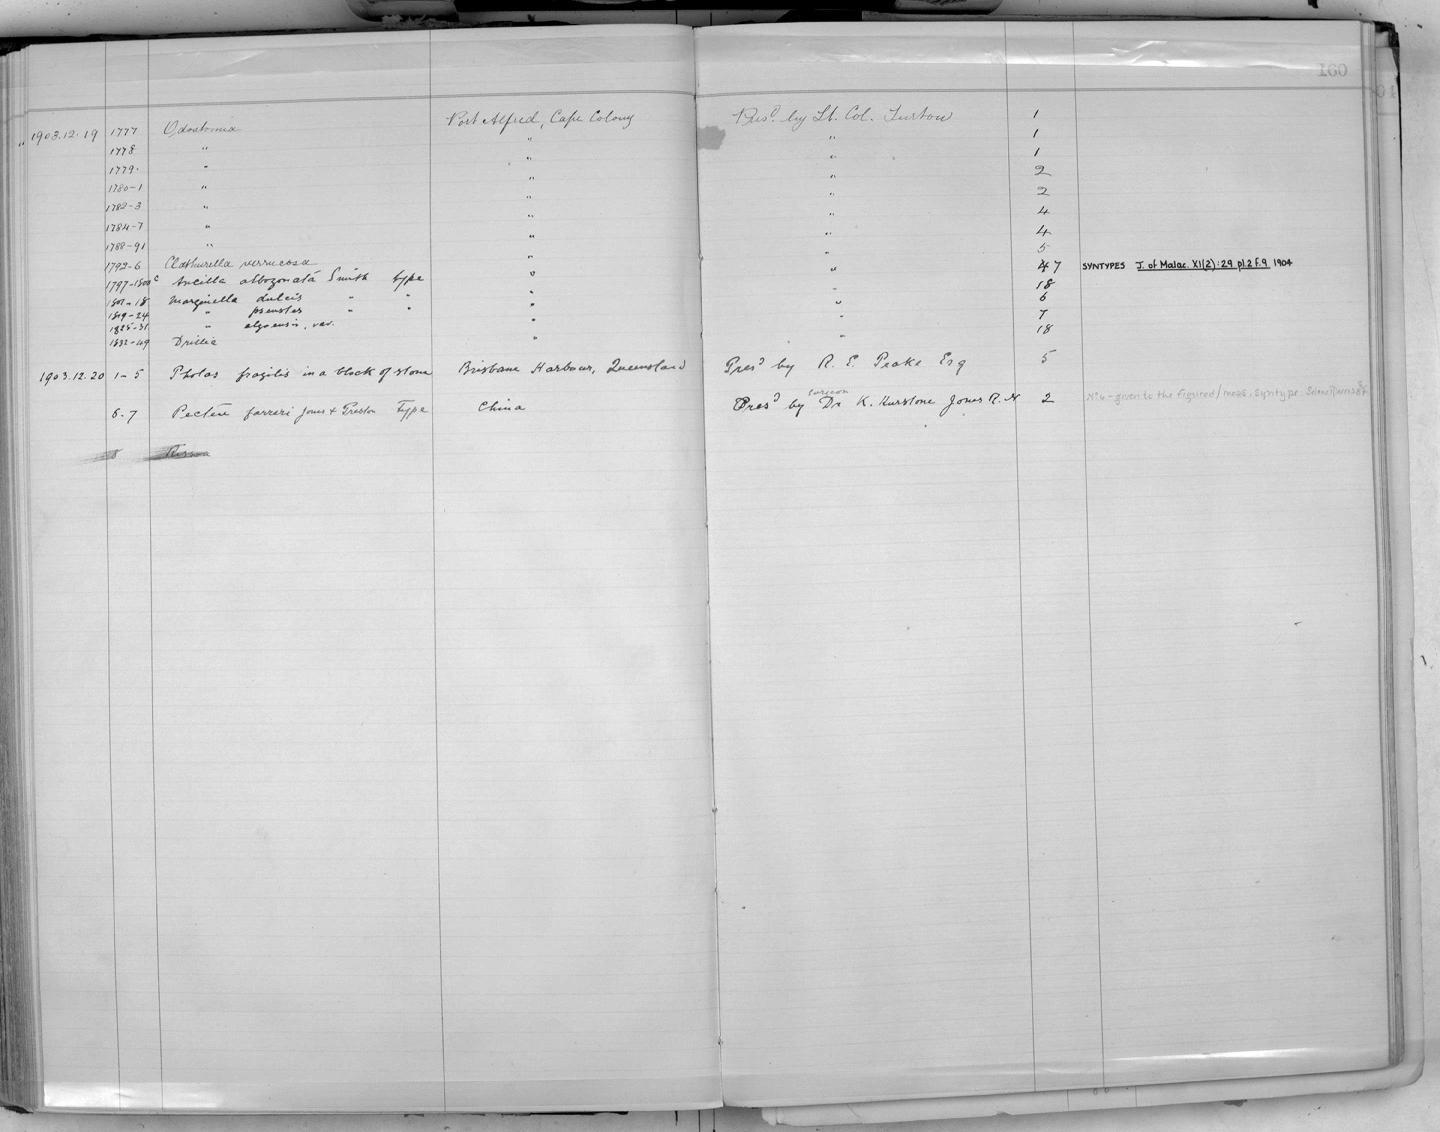 160
1903.12.19 1777 Odostomia Port Alfred, Cape Colony Presd by Lt. Col. Turton 1
" 1778 " " " 1
1779. " " " 1
1780-1 " " " 2
1782-3 " " " 2
1784-7 " " " 4
1788-91 " " " 4
1792-6 Clathurella verrucosa " " 5
1797-1800c Ancilla albozonata Smith type " " 47 SYNTYPES J. of Malac. XI(2):29 pl.2 f.9 1904
1801-18 Marginella dulcis " " " " 18
1819-24 " pseustes " " " " 6
1825-31 " algoensis, var. " " 7
1832-49 Drillia " " 18
1903.12.20 1-5 Pholas fragilis in a block of stone Brisbane Harbour, Queensland Presd by R. E. Peake Esq 5
6-7 Pecten farreri Jones & Preston Type China Presd by Surgeon Dr K. Hurstone Jones R.N 2 No 6 - given to the figured/meas. syntype.
8 Rissoa